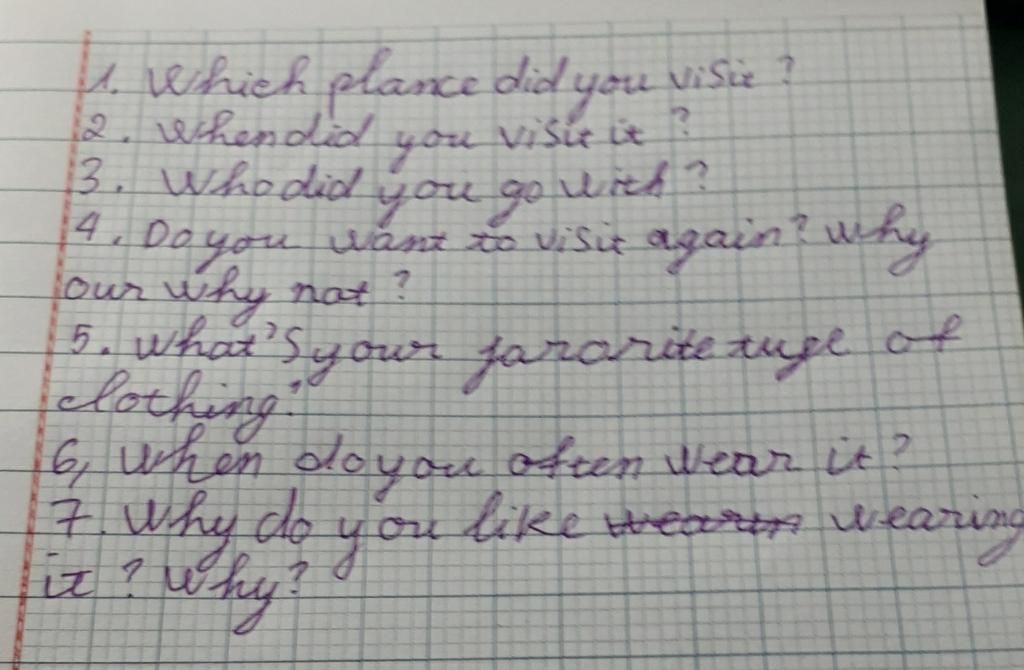 1. Which plance did you visit?
2. When did you visit it?
3. Who did you go with?
4. Do you want to visit again? Why
our why not?
5. What's your favorite type of
clothing?
6, When do you often wear it?
7. Why do you like wearing
it? Why?